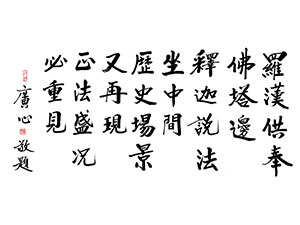 羅漢供奉
佛塔邊
釋迦説法
坐中間
歷史場景
又再現
正法盛况
必重見
廣心敬題